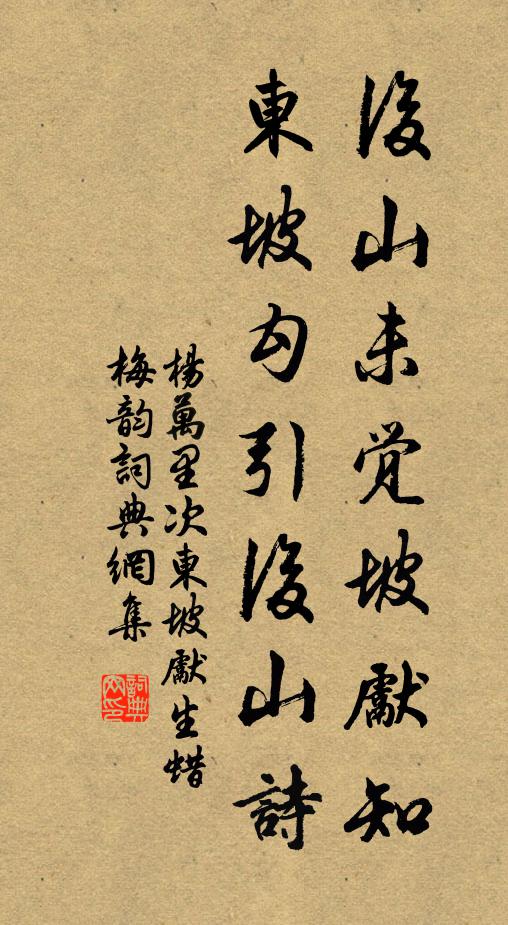 後山未觉坡獻知
東坡勾引後山詩
楊萬里次東坡獻生蜡
梅韵詞典網集
詞典